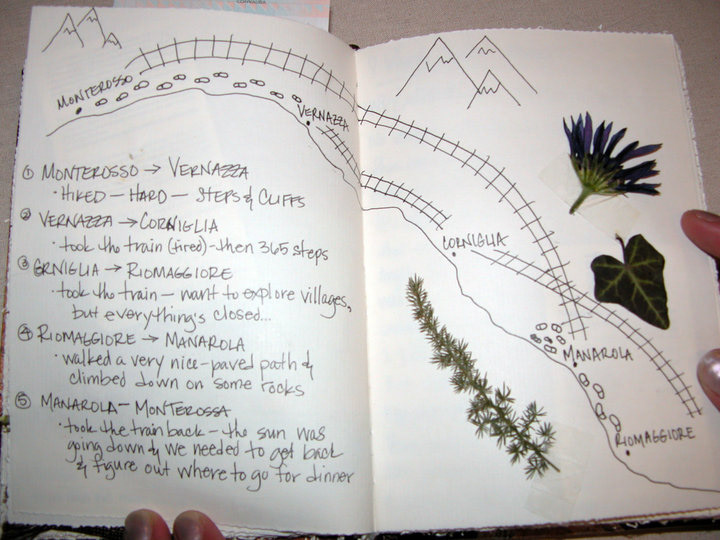 MONTEROSSO
VERNAZZA
① MONTEROSSO → VERNAZZA
· HIKED — HARD — STEPS & CLIFFS
② VERNAZZA → CORNIGLIA
· took the train (tired) - then 365 steps
③ CRNIGLIA → RIOMAGGIORE
· took the train — want to explore villages,
but everything's closed...
④ RIOMAGGIORE → MANAROLA
· walked a very nice-paved path &
climbed down on some rocks
⑤ MANAROLA — MONTEROSSA
· took the train back — the sun was
going down & we needed to get back
& figure out where to go for dinner
CORNIGLIA
MANAROLA
RIOMAGGIORE